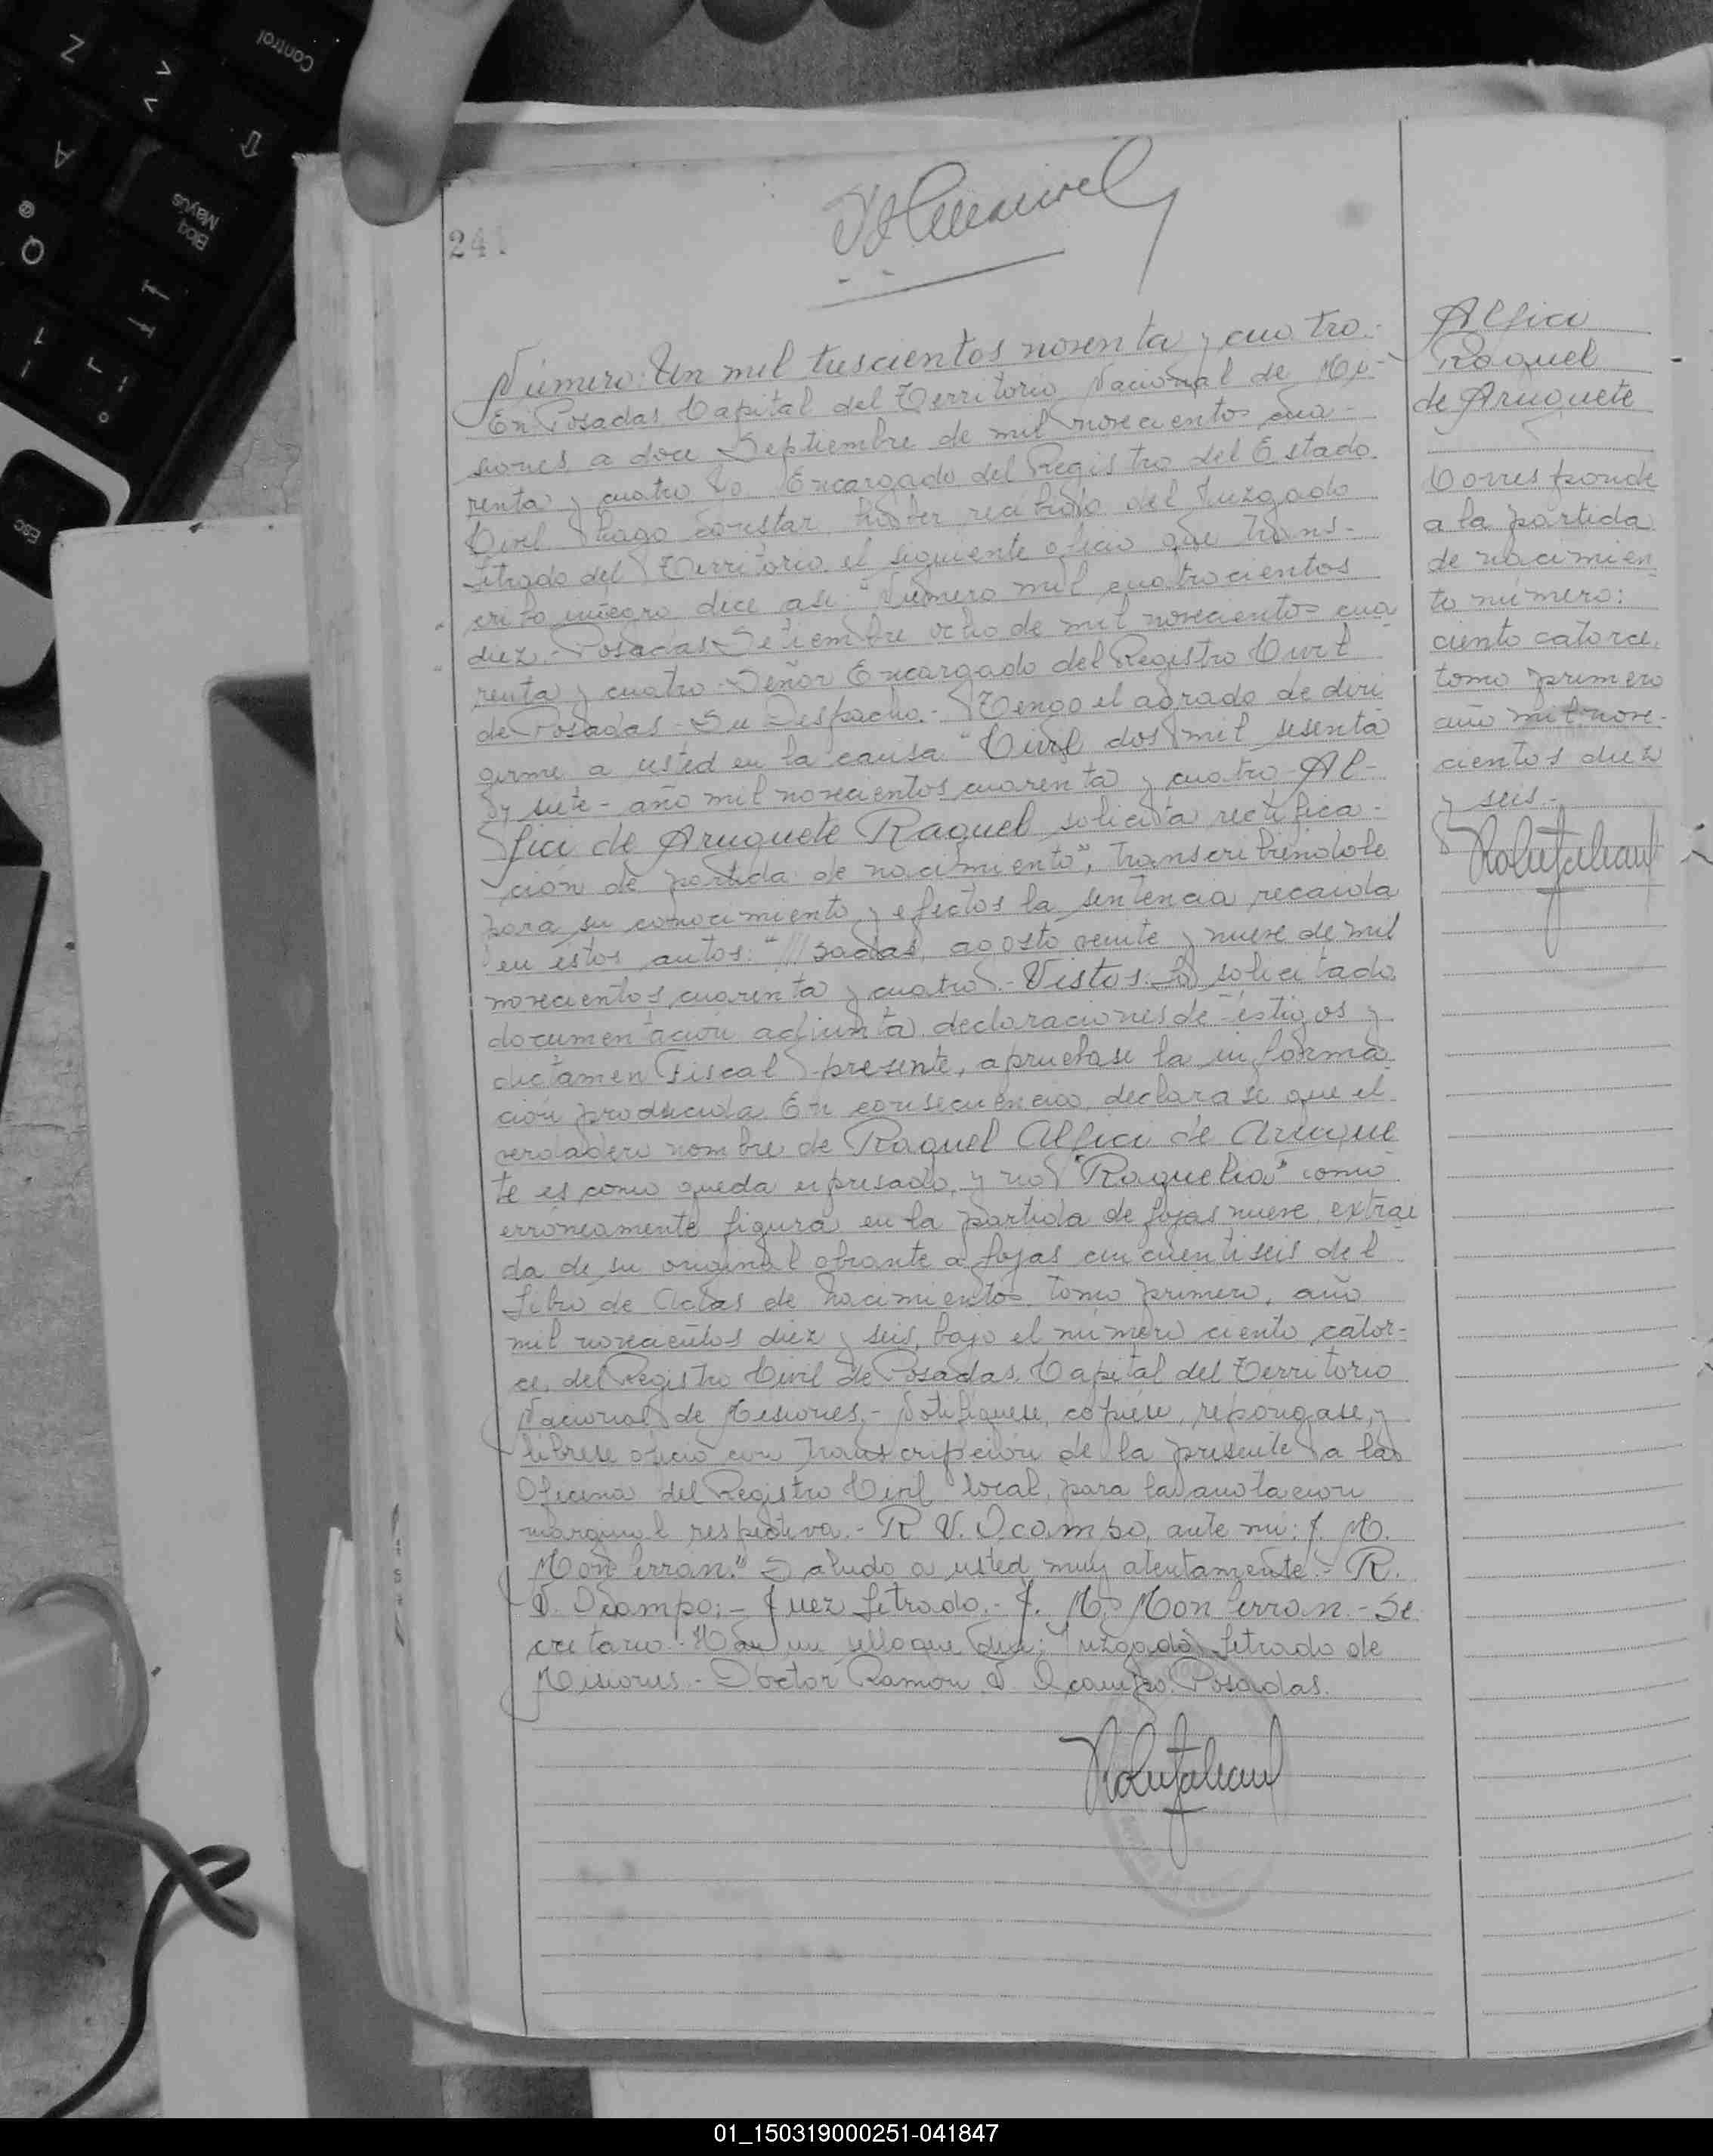 241
Número: Un mil trescientos noventa y cuatro.-
En Posadas Capital del Territorio Nacional de Mi-
siones, a doce Septiembre de mil novecientos cua-
renta y cuatro Yo Encargado del Registro del Estado
Civil hago constar, haber recibido del Juzgado
Letrado del Territorio el siguiente oficio que trans-
cribo integro dice asi: "Número mil cuatrocientos
diez.- Posadas Setiembre ocho de mil novecientos cua
renta y cuatro.- Señor Encargado del Registro Civil
de Posadas - Su Despacho.- Tengo el agrado de diri
girme a usted en la causa "Civil dos mil sesenta
y siete - año mil novecientos cuarenta y cuatro - Al-
fici de Aruquete Raquel solicita rectifica-
ción de partida de nacimiento", transcribiendole
para su conocimiento y efectos la sentencia recaida
en éstos autos: "///sadas, agosto veinte y nueve de mil
novecientos cuarenta y cuatro.- Vistos: Lo solicitado
documentación adjunta declaraciones de testigos y
dictamen Fiscal presente, apruebase la informa
ción producida En consecuencia, declarase que el
verdadero nombre de Raquel Alfici de Aruque
te es como queda expresado, y no "Raquelia" como
erróneamente figura en la partida de fojas nueve, extrai
da de su original obrante a fojas cincuentiseis del
Libro de Actas de Nacimientos tomo primero, año
mil novecientos diez y seis, bajo el número ciento cator-
ce, del Registro Civil de Posadas Capital del Territorio
Nacional de Misiones.- Notifíquese, copiese, repóngase, y
líbrese oficio con transcripción de la presente a la
Oficina del Registro Civil local, para la anotacion
marginal respectiva.- R. V. Ocampo, ante mi: J. M.
Monferrán." Saludo a usted muy atentamente.- R.
V. Ocampo;- Juez Letrado.- J. M. Monferran.- Se
cretario.- Hay un sello que dice: Juzgado Letrado de
Misiones.- Doctor Ramon V. Ocampo. Posadas.
Alfici
Raquel
de Aruquete
Corresponde
a la partida
de nacimien
to número:
ciento catorce,
tomo primero
año mil nove-
cientos diez
y seis.-
Control
Z
A
Q
Bloq
Mayús
Esc
01_150319000251-041847